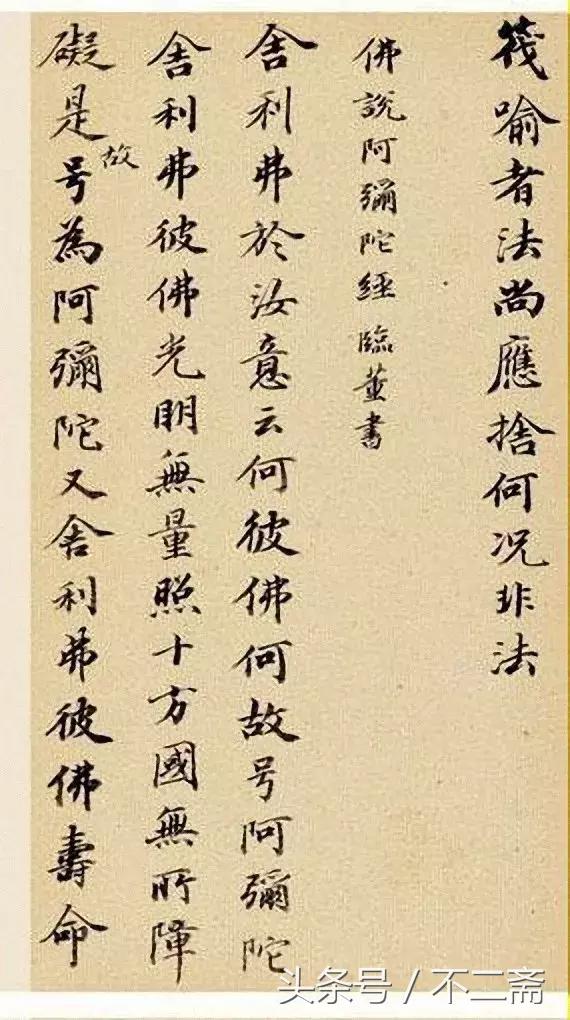 筏喻者法尚應捨何況非法
佛說阿彌陀經 臨董書
舍利弗於汝意云何彼佛何故号阿彌陀
舍利弗彼佛光明無量照十方國無所障
礙是故号為阿彌陀又舍利弗彼佛壽命
头条号 / 不二斋